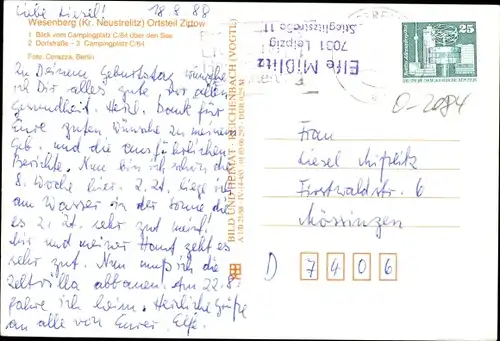 Liebe Liesel! 18.8.88
Wesenberg (Kr. Neustrelitz) Ortsteil Zirtow
1 Blick vom Campingplatz C/64 über den See
2 Dorfstraße - 3 Campingplatz C/64
Foto: Cerazza, Berlin
Zu Deinem Geburtstag wünsche
ich Dir alles gute vor allen
Gesundheit. Herzl. Dank für
Eure guten Wünsche zu meinen
Geb. und die ausführlichen
Berichte. Nun bin ich schon die
8. Woche hier. Z. Zt. liege ich
am Wasser in der Sonne die
es z. Zt. sehr gut meint.
Mir und meiner Haut geht es
sehr gut. Nun muß ich die
Zeltvilla abbauen. Am 22.8.
fahre ich heim. Herzliche Grüße
an alle von Eurer Elfe.
BILD UND HEIMAT · REICHENBACH (VOGTL)
A 1/B 25/88 IV-14-483 01 03 06 297
Elfe Mißlitz
7031 Leipzig
Stieglitzstraße 11
25
O-2084
Frau
Liesel Mißlitz
Forstwaldstr. 6
Mössingen
D 7406